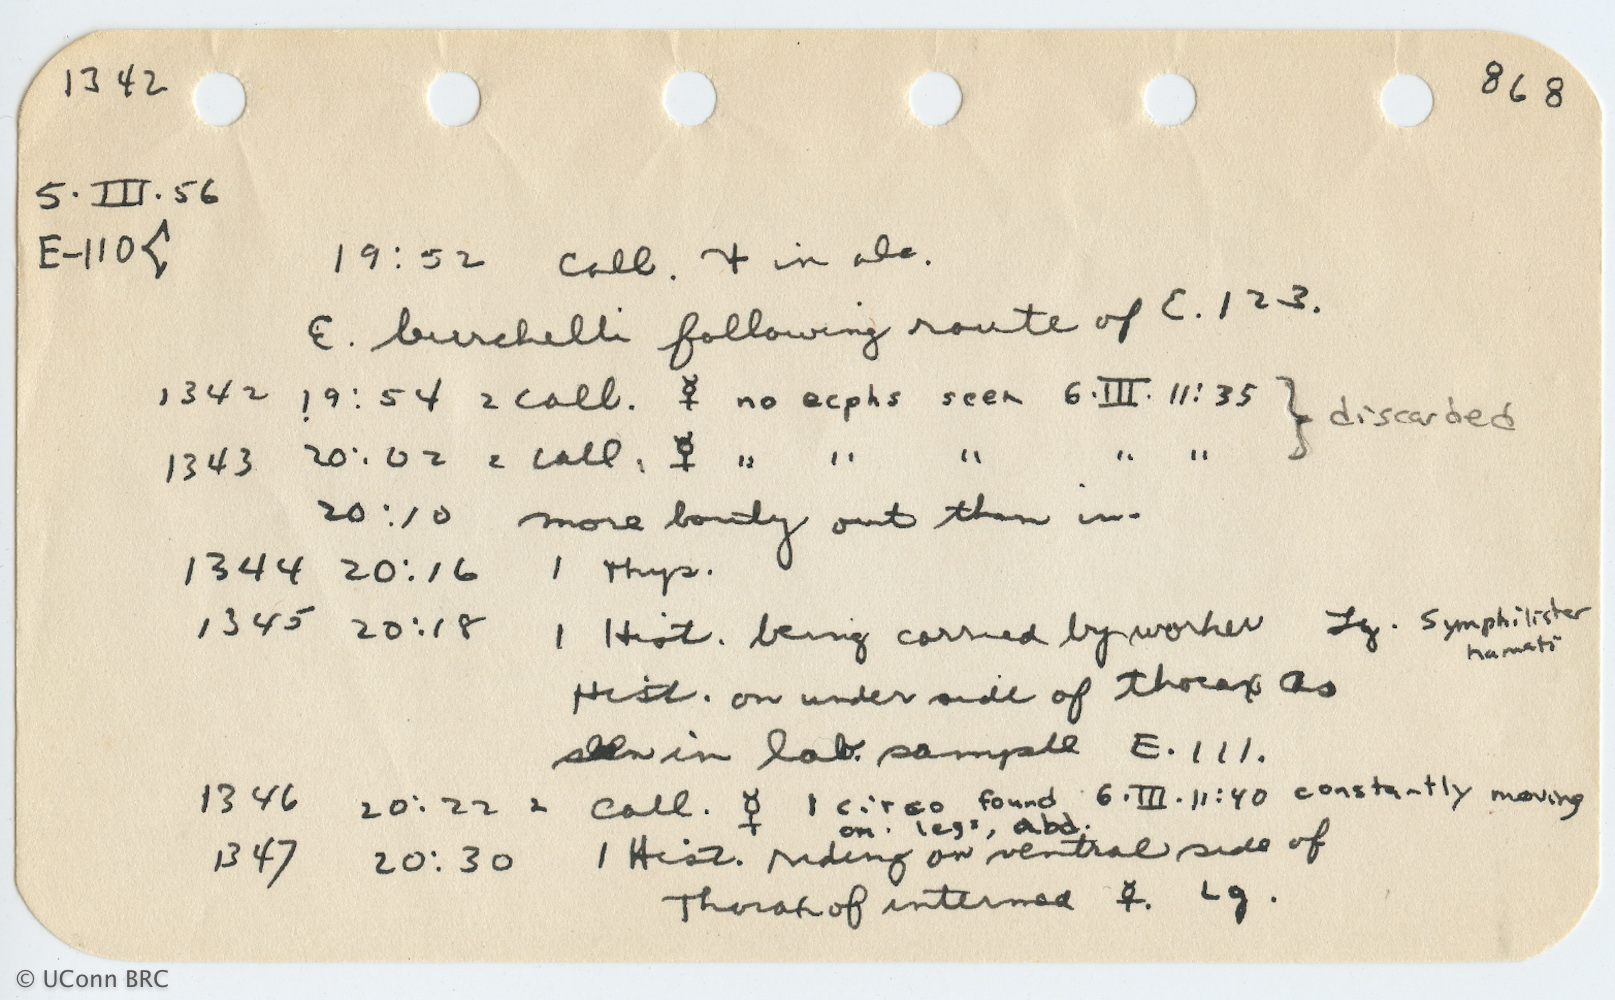 1342
868
5·III·56
E-110<
19:52 Coll. + in alc.
E. burchelli following route of E.123.
1342 19:54 2 Coll. ☿ no ecphs seen 6·III· 11:35 } discarded
1343 20:02 2 Coll. ☿ " " " " "
20:10 more booty out than in.
1344 20:16 1 Thys.
1345 20:18 1 Hist. being carried by worker Lg. Symphilister hamati
Hist. on under side of thorax as
seen in lab. sample E.111.
1346 20:22 2 Coll. ☿ 1 circo found 6·III·11:40 constantly moving
on legs, abd.
1347 20:30 1 Hist. riding on ventral side of
Thorax of intermed ☿. Lg.
© UConn BRC